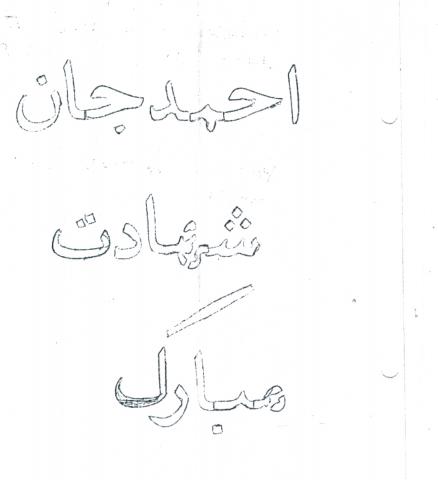 احمد جان
شهادت
مبارک